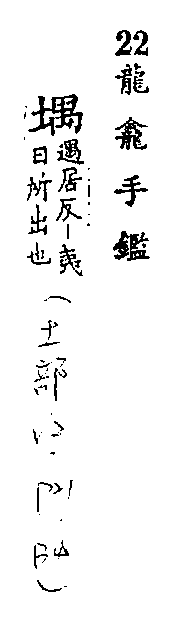 22 龍龕手鑑
堣 遇居反丨夷
日所出也
(土部